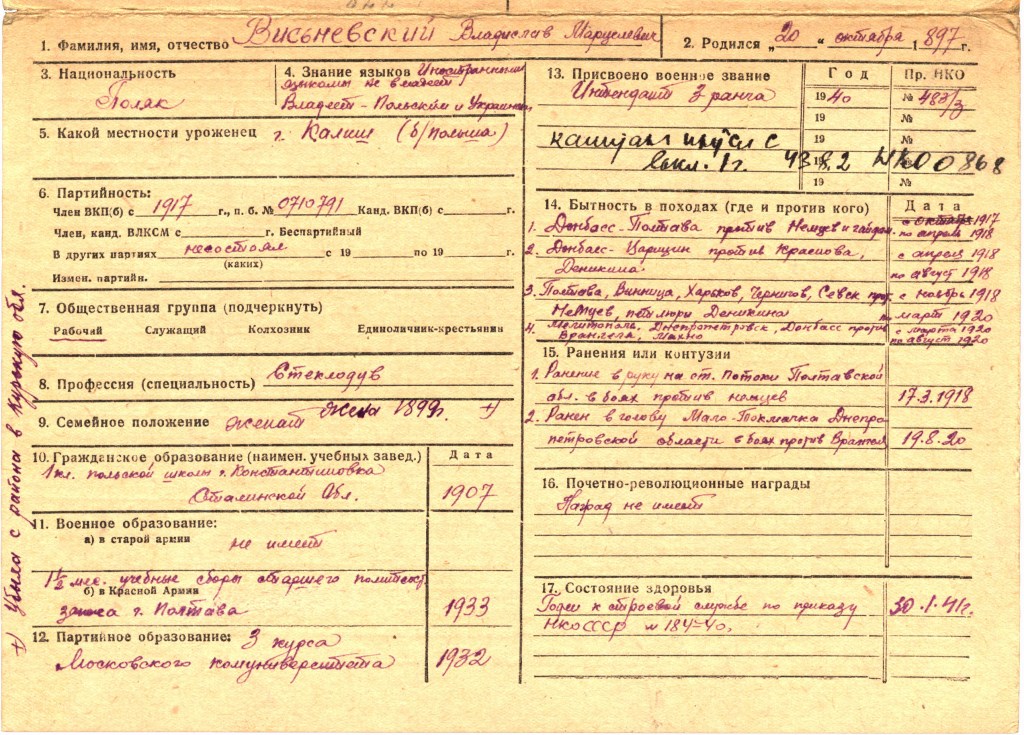 1. Фамилия, имя, отчество Висьневский Владислав Марцелевич
2. Родился „20“ октября 1897 г.
3. Национальность
Поляк
4. Знание языков Иностранными
языками не владеет,
Владеет - Польским и Украинск.
5. Какой местности уроженец г. Калиш (б/польша)
6. Партийность:
Член ВКП(б) с 1917 г., п. б. № 0710791 Канд. ВКП(б) с г.
Член, канд. ВЛКСМ с г. Беспартийный
В других партиях несостоял с 19 по 19 г.
(каких)
Измен. партийн.
7. Общественная группа (подчеркнуть)
Рабочий Служащий Колхозник Единоличник-крестьянин
8. Профессия (специальность) Стеклодув
жена 1899г. +)
9. Семейное положение женат
10. Гражданское образование (наимен. учебных завед.) Дата
1 кл. польской школы г. Константиновка
Сталинской Обл. 1907
11. Военное образование:
а) в старой армии не имеет
1½ мес. учебные сборы старшего политсост.
б) в Красной Армии
запаса г. Полтава 1933
12. Партийное образование: 3 курса
Московского комуниверситета 1932
+) Убыла с района в Курскую обл.
13. Присвоено военное звание Год Пр. НКО
Интендант 3 ранга 1940 № 483/3
19 №
капитан инт сл с 19 №
вкл. 1г. 43 8.2 НКО 0868
19 №
14. Бытность в походах (где и против кого) Дата
1. Донбасс-Полтава против Немцев и гайдам. с октября 1917
по апрель 1918
2. Донбасс-Царицин против Краснова, с апреля 1918
Деникина. по август 1918
3. Полтава, Винница, Харьков, Чернигов, Севск прот. с ноябрь 1918
Немцев, петлюры Деникина по март 1920
4. Мелитополь, Днепропетровск, Донбасс против с марта 1920
Врангеля, Махно по август 1920
15. Ранения или контузии
1. Ранение в руку на ст. Потоки Полтавской
обл. в боях против немцев 17.3.1918
2. Ранен в голову Мало-Токмачка Днепро-
петровской области в боях против Врангеля 19.8.20
16. Почетно-революционные награды
Наград не имеет
17. Состояние здоровья
Годен к строевой службе по приказу 30.1.41г.
НКО СССР № 184-40.